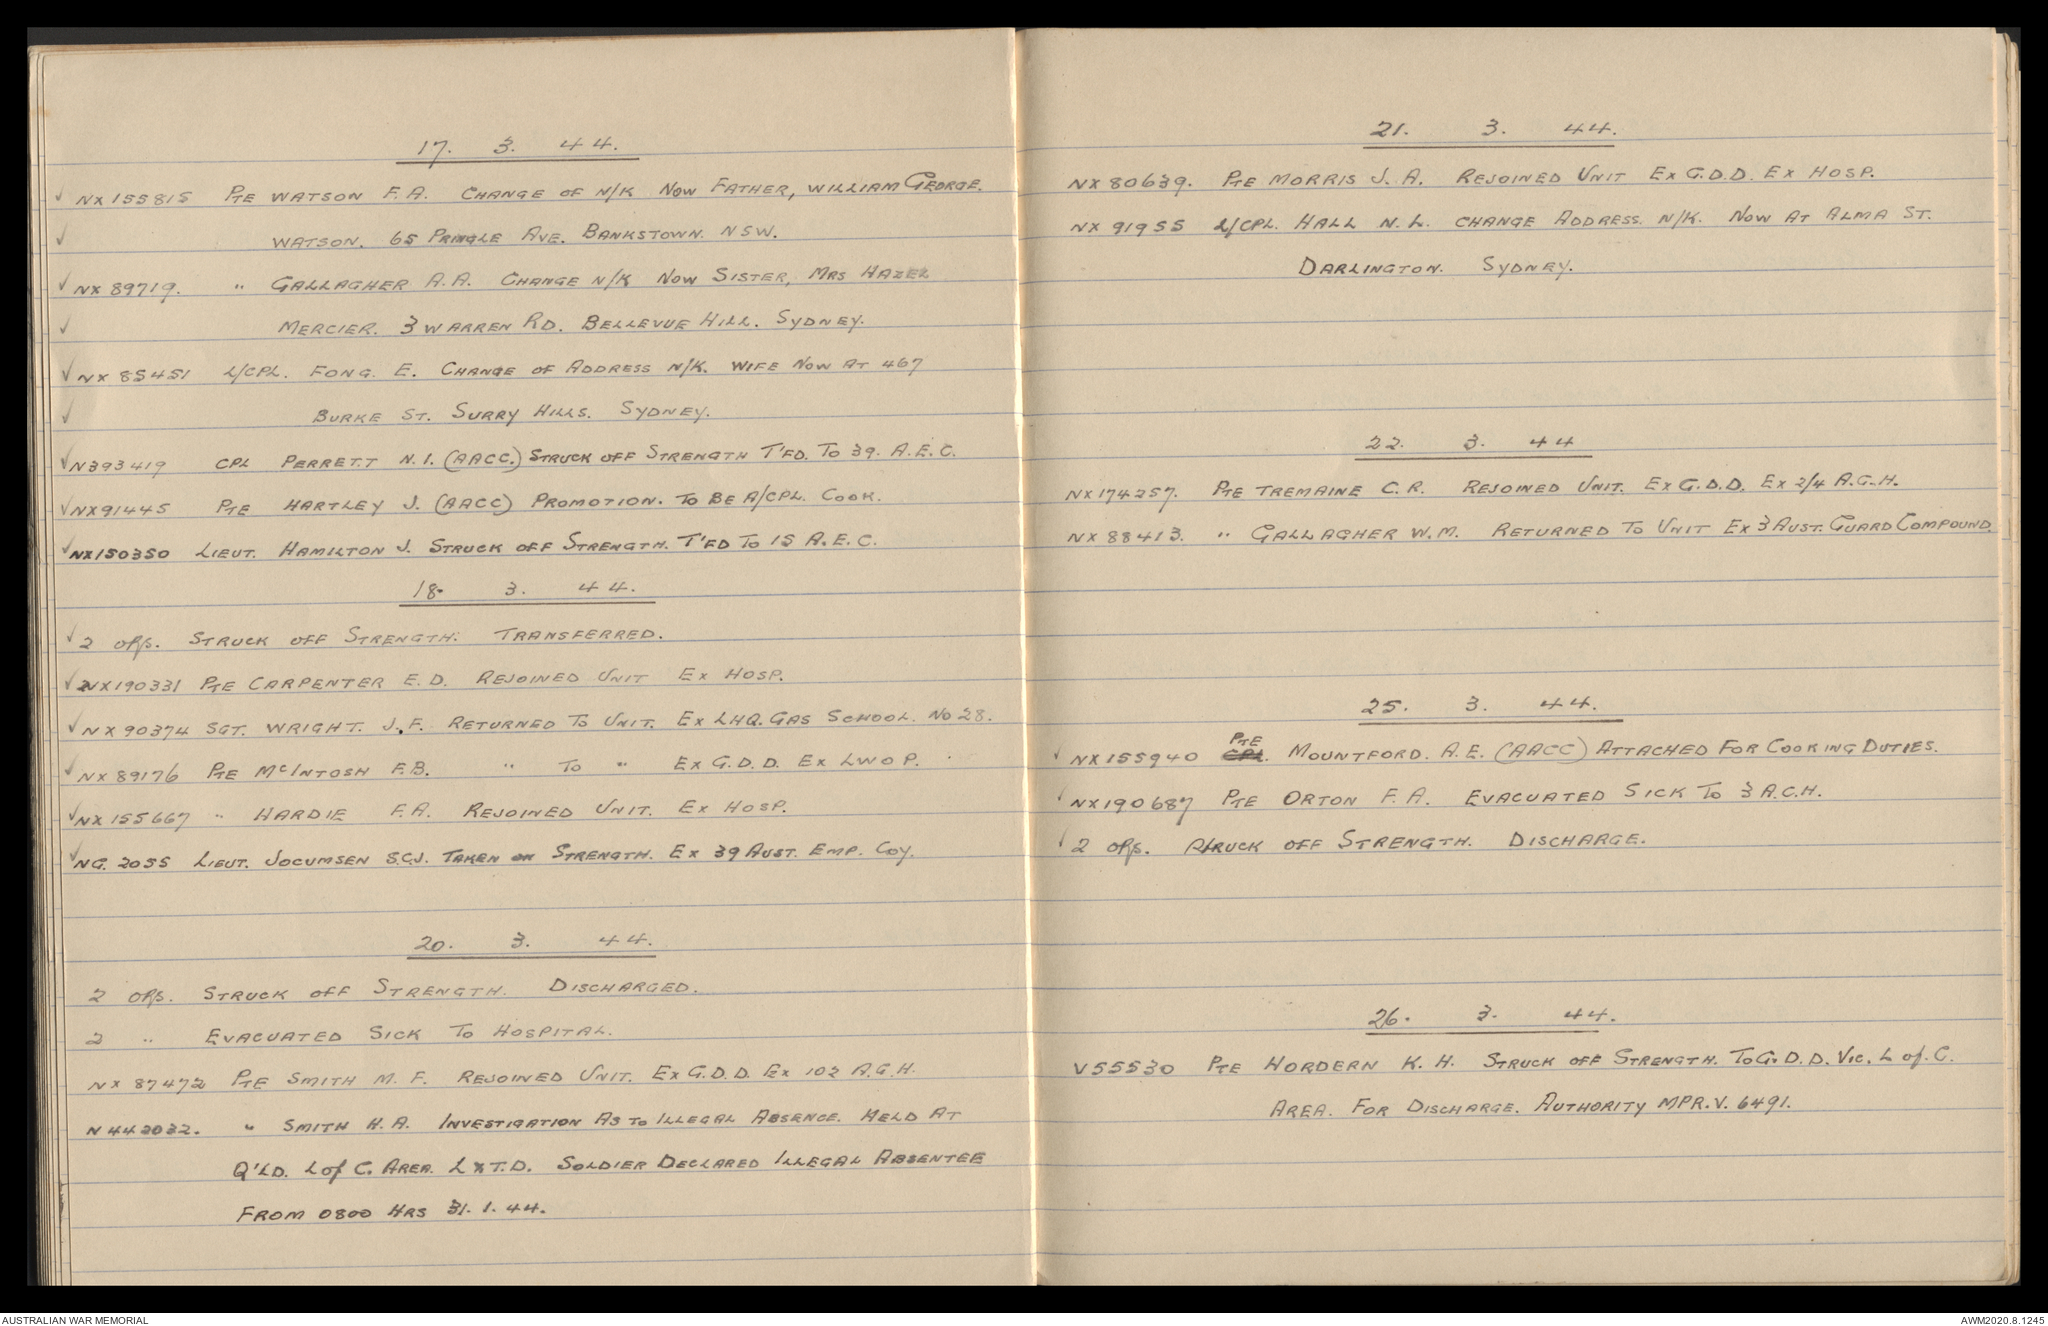 17. 3. 44.
NX155815 Pte WATSON F.A. CHANGE OF N/K NOW FATHER, WILLIAM GEORGE.
WATSON. 65 PRINGLE AVE. BANKSTOWN. NSW.
NX89719. " GALLAGHER A.A. CHANGE N/K NOW SISTER, MRS HAZEL
MERCIER. 3 WARREN RD. BELLEVUE HILL. SYDNEY.
NX85451 L/CPL. FONG. E. CHANGE OF ADDRESS N/K. WIFE NOW AT 467
BURKE ST. SURRY HILLS. SYDNEY.
N393419 CPL PERRETT N.I. (AACC.) STRUCK OFF STRENGTH T'FD. TO 39. A.E.C.
NX91445 PTE HARTLEY J. (AACC) PROMOTION. TO BE A/CPL. COOK.
NX150350 LIEUT. HAMILTON J. STRUCK OFF STRENGTH. T'FD TO 15 A.E.C.
18. 3. 44.
2 ORs. STRUCK OFF STRENGTH. TRANSFERRED.
NX190331 PTE CARPENTER E.D. REJOINED UNIT EX HOSP.
NX90374 SGT. WRIGHT. J.F. RETURNED TO UNIT. EX LHQ. GAS SCHOOL. No 28.
NX89176 PTE McINTOSH F.B. " TO " EX G.D.D. EX LWOP.
NX155667 " HARDIE F.A. REJOINED UNIT. EX HOSP.
NG.2055 LIEUT. JOCUMSEN S.C.J. TAKEN ON STRENGTH. EX 39 AUST. EMP. COY.
20. 3. 44.
2 ORs. STRUCK OFF STRENGTH. DISCHARGED.
2 " EVACUATED SICK TO HOSPITAL.
NX87472 PTE SMITH M.F. REJOINED UNIT. EX G.D.D. EX 102 A.G.H.
N442032. " SMITH H.A. INVESTIGATION AS TO ILLEGAL ABSENCE. HELD AT
Q'LD. L of C. AREA. L X T.D. SOLDIER DECLARED ILLEGAL ABSENTEE
FROM 0800 HRS 31.1.44.
21. 3. 44.
NX80639. PTE MORRIS J.A. REJOINED UNIT EX G.D.D. EX HOSP.
NX91955 L/CPL. HALL N.L. CHANGE ADDRESS. N/K. NOW AT ALMA ST.
DARLINGTON. SYDNEY.
22. 3. 44
NX174257. PTE TREMAINE C.R. REJOINED UNIT. EX G.D.D. EX 2/4 A.G.H.
NX88413. " GALLAGHER W.M. RETURNED TO UNIT EX 3 AUST. GUARD COMPOUND.
25. 3. 44.
PTE
NX155940 CPL. MOUNTFORD. A.E. (AACC) ATTACHED FOR COOKING DUTIES.
NX190687 PTE ORTON F.A. EVACUATED SICK TO 3 A.C.H.
2 ORs. STRUCK OFF STRENGTH. DISCHARGE.
26. 3. 44.
V55530 PTE HORDERN K.H. STRUCK OFF STRENGTH. TO G.D.D. VIC. L of. C.
AREA. FOR DISCHARGE. AUTHORITY MPR.V. 6491.
AUSTRALIAN WAR MEMORIAL
AWM2020.8.1245